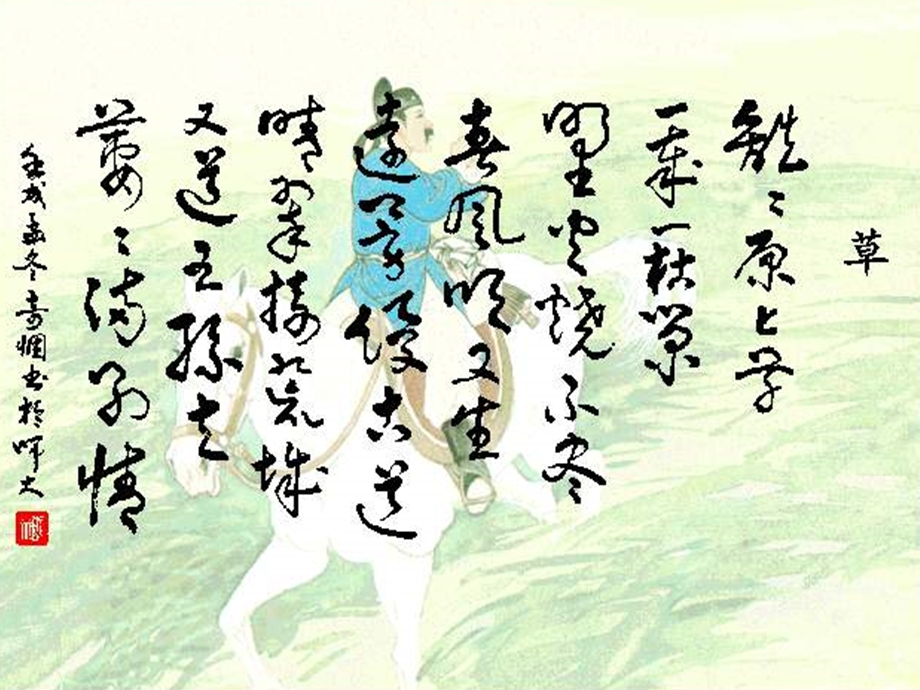 草
離々原上草
一歲一枯榮
野火燒不尽
春風吹又生
遠芳侵古道
晴翠接荒城
又送王孫去
萋々滿別情
戌孟冬书於师大